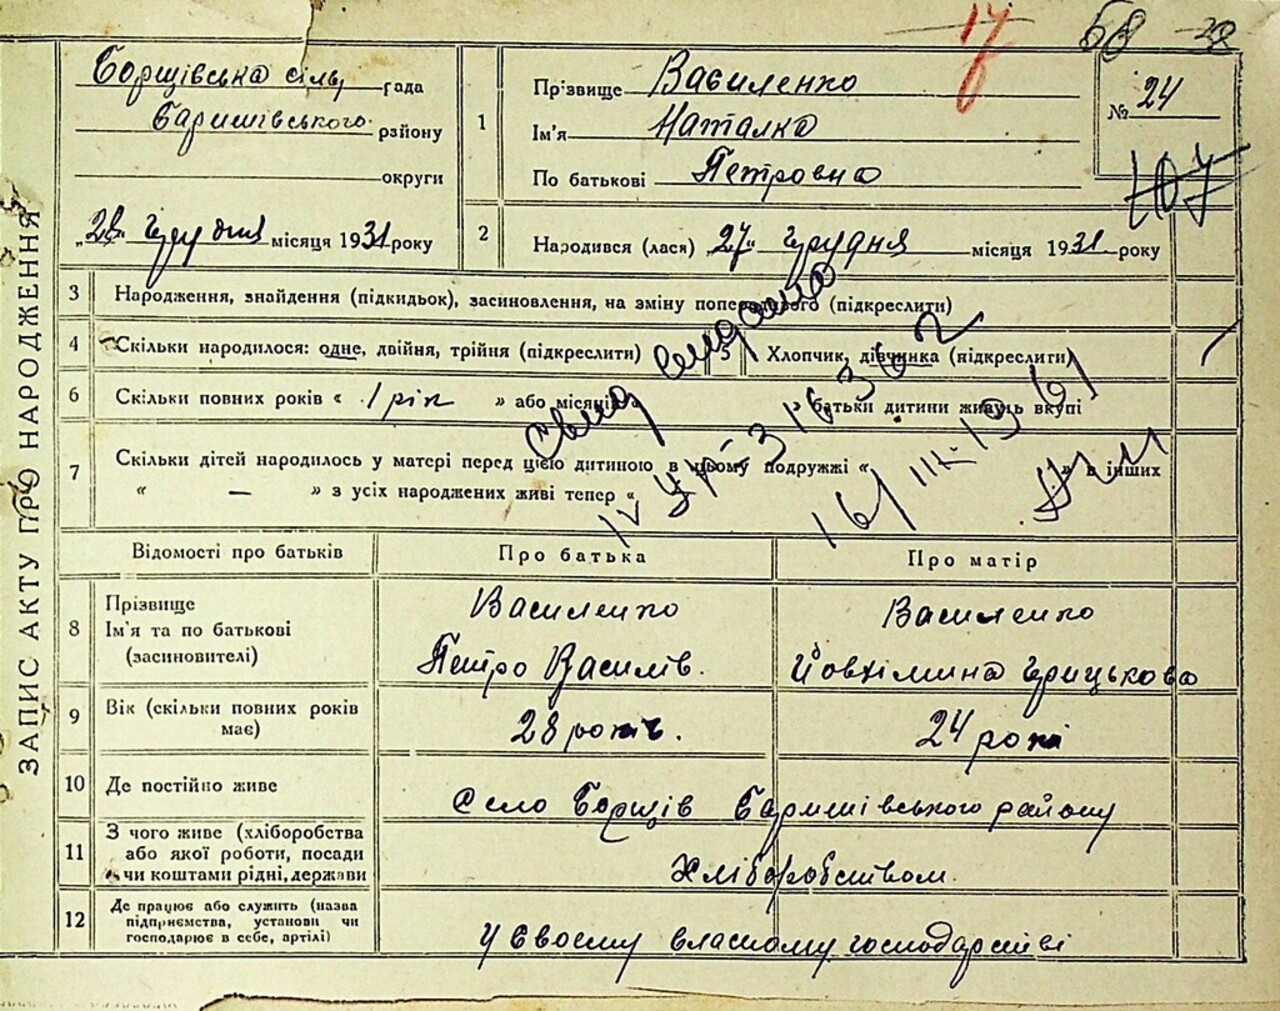 17 58
ЗАПИС АКТУ ПРО НАРОДЖЕННЯ
Борщівська сіль рада
Баришівського району
округи
„28“ грудня місяця 1931 року
1
Прізвище Василенко
Ім'я Наталка
По батькові Петровна
№ 24
107
2
Народився (лася) „27“ грудня місяця 1931 року
3 Народження, знайдення (підкидьок), засиновлення, на зміну попереднього (підкреслити)
4 Скільки народилося: одне, двійня, трійня (підкреслити) 5 Хлопчик, дівчинка (підкреслити)
6 Скільки повних років « 1 рік » або місяців « батьки дитини живуть вкупі
7 Скільки дітей народилось у матері перед цією дитиною в цьому подружжі « » в інших
« — » з усіх народжених живі тепер «
16/III-1961
Відомості про батьків Про батька Про матір
8 Прізвище Ім'я та по батькові (засиновителі)
Василенко Петро Василів.
Василенко Йовхімина Грицькова
9 Вік (скільки повних років має) 28 років. 24 роки
10 Де постійно живе Село Борщів Баришівського району
11 З чого живе (хліборобства або якої роботи, посади чи коштами рідні, держави Хліборобством.
12 Де працює або служить (назва підприємства, установи чи господарює в себе, артілі) У своєму власному господарстві